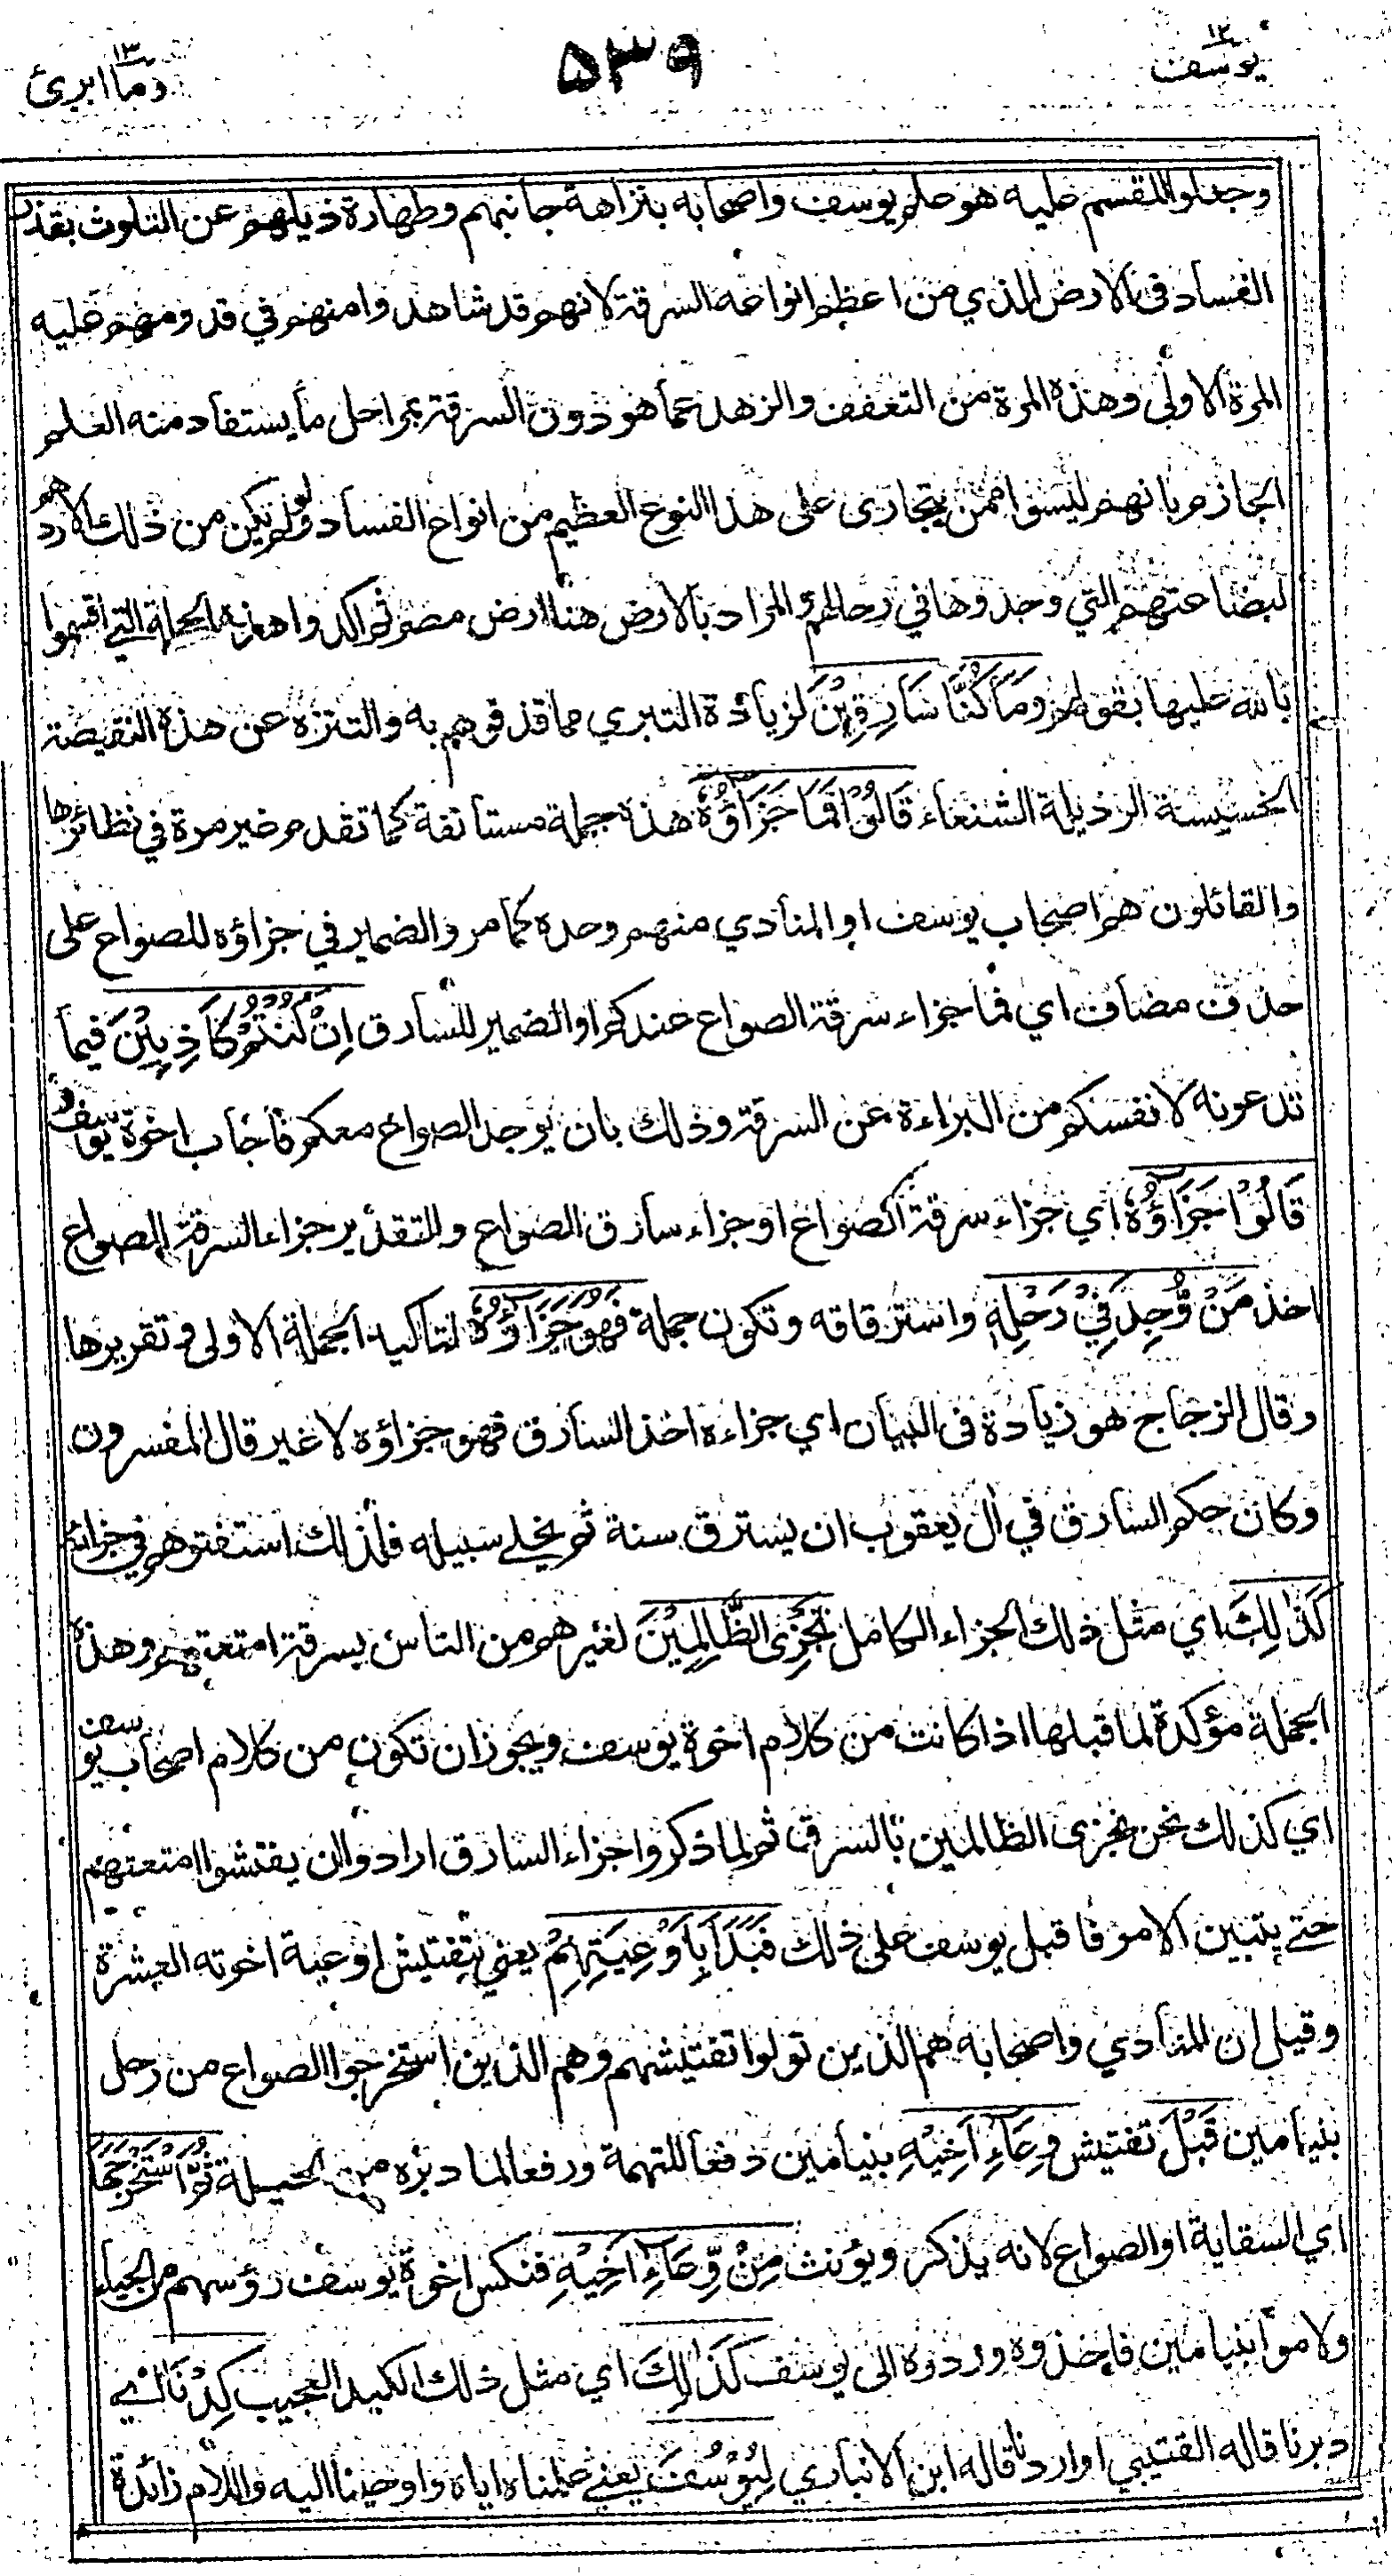 يوسف ١٢
٥٣٩
وما ابرئ ١٣
وجعلوا المقسم عليه هو علم يوسف واصحابه بنزاهة جانبهم وطهارة ذيلهم عن التلوث بقذر
الفساد فى الارض الذي من اعظم انواعه السرقة لانهم قد شاهدوا منهم في قدومهم عليه
المرة الاولى وهذه المرة من التعفف والزهد عما هو دون السرقة بمراحل ما يستفاد منه العلم
الجازم بانهم ليسوا ممن يتجارى على هذا النوع العظيم من انواع الفساد ولو لم يكن من ذلك الا ردهم
لبضاعتهم التي وجدوها في رحالهم والمراد بالارض هنا ارض مصر ثم اكدوا هذه الجملة التي اقسموا
بالله عليها بقولهم وَمَا كُنَّا سَارِقِيْنَ لزيادة التبري مما قذفوهم به والتنزه عن هذه النقيصة
الخسيسة الرذيلة الشنعاء قَالُوْا فَمَا جَزَآؤُهٗ هذه جملة مستأنفة كما تقدم غير مرة في نظائرها
والقائلون هم اصحاب يوسف او المنادي منهم وحده كما مر والضمير في جزاؤه للصواع على
حذف مضاف اي فما جزاء سرقة الصواع عندكم او الضمير للسارق اِنْ كُنْتُمْ كَاذِبِيْنَ فيما
تدعونه لانفسكم من البراءة عن السرقة وذلك بان يوجد الصواع معكم فاجاب اخوة يوسف و
قَالُوْا جَزَآؤُهٗ اي جزاء سرقة الصواع او جزاء سارق الصواع والتقدير جزاء السرقة للصواع
اخذ مَنْ وُّجِدَ فِيْ رَحْلِهٖ واسترقاقه وتكون جملة فَهُوَ جَزَآؤُهٗ لتاكيد الجملة الاولى وتقريرها
وقال الزجاج هو زيادة فى البيان اي جزاءه اخذ السارق فهو جزاؤه لا غير قال المفسرون
وكان حكم السارق في ال يعقوب ان يسترق سنة ثم يخلے سبيله فلذلك استفتوهم في جزائه
كَذٰلِكَ اي مثل ذلك الجزاء الكامل نَجْزِى الظَّالِمِيْنَ لغيرهم من الناس بسرقة امتعتهم وهذه
الجملة مؤكدة لما قبلها اذا كانت من كلام اخوة يوسف ويجوز ان تكون من كلام اصحاب يوسف
اي كذلك نحن نجزى الظالمين بالسرق ثم لما ذكروا جزاء السارق ارادوا ان يفتشوا امتعتهم
حتے يتبين الامر فاقبل يوسف على ذلك فَبَدَاَ بِاَوْعِيَتِهِمْ يعني بتفتيش اوعية اخوته العشرة
وقيل ان المنادي واصحابه هم الذين تولوا تفتيشهم وهم الذين استخرجوا الصواع من رحل
بنيامين قَبْلَ تفتيش وِعَآءِ اَخِيْهِ بنيامين دفعا للتهمة ورفعا لما دبره من الحيلة ثُمَّ اسْتَخْرَجَهَا
اي السقاية او الصواع لانه يذكر ويؤنث مِنْ وِّعَآءِ اَخِيْهِ فنكس اخوة يوسف رؤسهم من الحياء
ولاموا بنيامين فاخذوه وردوه الى يوسف كَذٰلِكَ اي مثل ذلك الكيد العجيب كِدْنَا اي
دبرنا قاله القتيبي او اردنا قاله ابن الانباري لِيُوْسُفَ يعنے علمناه اياه واوحينا اليه واللام زائدة